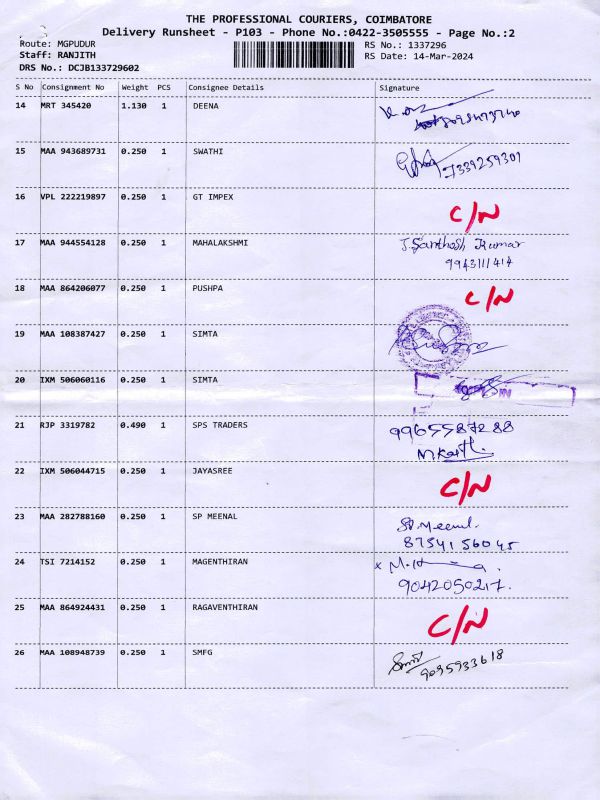 THE PROFESSIONAL COURIERS, COIMBATORE
Delivery Runsheet - P103 - Phone No.:0422-3505555 - Page No.:2
Route: MGPUDUR RS No.: 1337296
Staff: RANJITH RS Date: 14-Mar-2024
DRS No.: DCJB133729602
S No Consignment No Weight PCS Consignee Details Signature
14 MRT 345420 1.130 1 DEENA
15 MAA 943689731 0.250 1 SWATHI
7339259301
16 VPL 222219897 0.250 1 GT IMPEX C/N
17 MAA 944554128 0.250 1 MAHALAKSHMI J.Santhosh Kumar
9943111414
18 MAA 864206077 0.250 1 PUSHPA C/N
19 MAA 108387427 0.250 1 SIMTA
20 IXM 506060116 0.250 1 SIMTA
21 RJP 3319782 0.490 1 SPS TRADERS 9965587288
22 IXM 506044715 0.250 1 JAYASREE C/N
23 MAA 282788160 0.250 1 SP MEENAL SP.Meenal.
8754156045
24 TSI 7214152 0.250 1 MAGENTHIRAN x
9042050217.
25 MAA 864924431 0.250 1 RAGAVENTHIRAN C/N
26 MAA 108948739 0.250 1 SMFG
9095933618